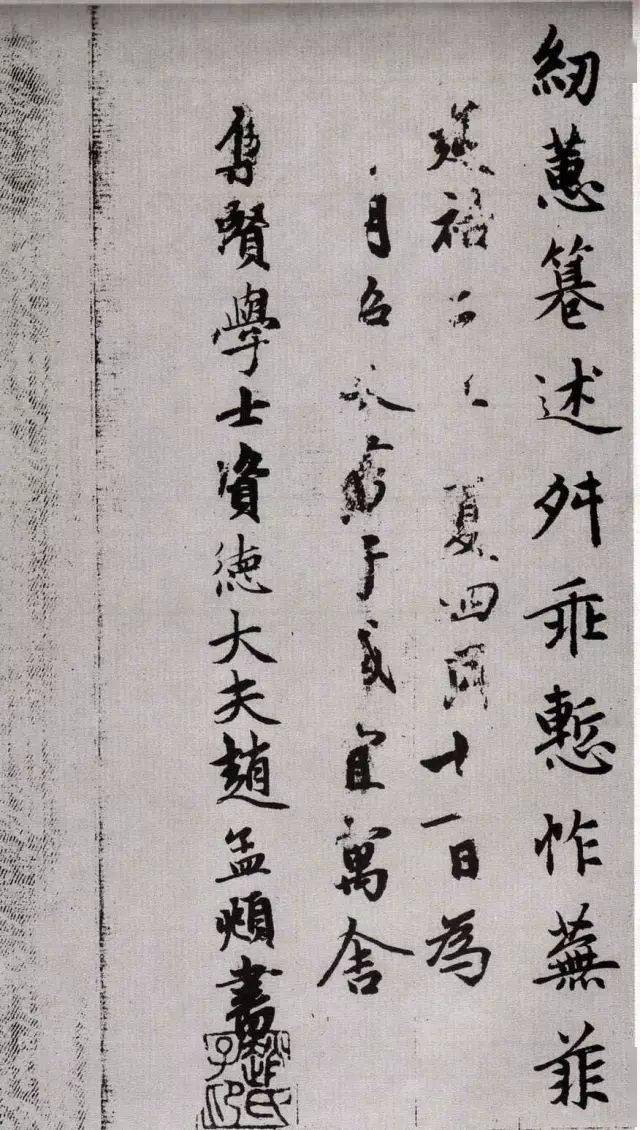 紉蕙篹述舛乖慙怍蕪菲
延祐二夏四月十一日為
月于咸宜寓舍
集賢學士資德大夫趙孟頫書
趙氏子昂